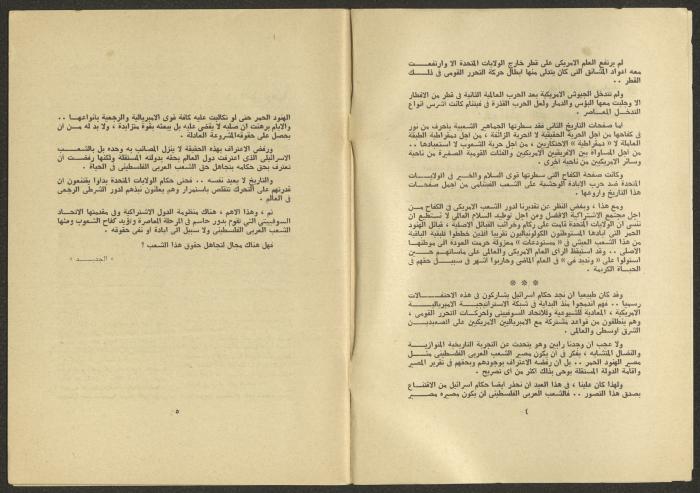 لم يرتفع العلم الاميركي على قطر خارج الولايات المتحدة الا وارتفعت
معه اعواد المشانق التي كان يتدلى منها ابطال حركة التحرر القومي في ذلك
القطر ..
ولم تتدخل الجيوش الاميركية بعد الحرب العالمية الثانية في قطر من الاقطار
الا وجلبت معها البؤس والدمار ولعل الحرب القذرة في فيتنام كانت اشرس انواع
التدخل المعاصر .
اما صفحات التاريخ الثاني فقد سطرتها الجماهير الشعبية بأحرف من نور
في كفاحها من اجل الحرية الحقيقية لا الحرية الزائفة ، من اجل ديمقراطية الطبقة
العاملة لا « ديمقراطية » الاحتكاريين ، من اجل حرية الشعوب لا استعبادها ..
من اجل المساواة بين الافريقيين الاميركيين والفئات القومية الصغيرة من ناحية
وسائر الاميركيين من ناحية اخرى .
وكانت صفحة الكفاح التي سطرتها قوى السلام والخير في الولايات
المتحدة ضد حرب الابادة الوحشية على الشعب الفيتنامي من اجمل صفحات
هذا التاريخ واروعها .
ومع هذا ، وبغض النظر عن تقديرنا لدور الشعب الاميركي في الكفاح من
اجل مجتمع الاشتراكية الافضل ومن اجل توطيد السلام العالمي لا نستطيع ان
ننسى ان الولايات المتحدة قامت على ركام وخرائب القبائل الاصلية ، قبائل الهنود
الحمر التي ابادها المستوطنون الكولونياليون تقريبا الذين خططوا للبقية الباقية
من هذا الشعب العيش في « مستودعات » معزولة حرمت العودة الى موطنها
الاصلي .. وقد استيقظ الراي العام الاميركي والعالمي على ماساتهم حين
استولوا على « وونديد ني » في العام الماضي وحاربوا اشهر في سبيل حقهم في
الحياة الكريمة .
* * *
وقد كان طبيعيا ان نجد حكام اسرائيل يشاركون في هذه الاحتفالات
رسميا .. فهم اندمجوا منذ البداية في شبكة الاستراتيجية الامبريالية
الاميركية ، المعادية للشيوعية وللاتحاد السوفييتي ولحركات التحرر القومي ،
وهم ينطلقون من قواعد مشتركة مع الامبرياليين الاميركيين على الصعيدين
الشرق اوسطي والعالمي .
ولا عجب ان وجدنا رابين وهو يتحدث عن التجربة التاريخية المتوازية
والنضال المتشابه ، يفكر في ان يكون مصير الشعب العربي الفلسطيني مثل
مصير الهنود الحمر .. بل ان رفضه الاعتراف بوجودهم وبحقهم في تقرير المصير
واقامة الدولة المستقلة يوحي بذلك اكثر من اي تصريح .
ولهذا كان علينا ، في هذا العيد ان نحذر ايضا حكام اسرائيل من الاقتناع
بصدق هذا التصور .. فالشعب العربي الفلسطيني لن يكون مصيره مصير
٤
الهنود الحمر حتى لو تكالبت عليه كافة قوى الامبريالية والرجعية بانواعها ..
والايام برهنت ان صلبه لا يقضي عليه بل يبعثه بقوة متزايدة ، ولا بد له من ان
يحصل على حقوقه المشروعة العادلة .
ورفض الاعتراف بهذه الحقيقة لا ينزل المصائب به وحده بل بالشعب
الاسرائيلي الذي اعترفت دول العالم بحقه بدولته المستقلة ولكنها رفضت ان
تعترف بحق حكامه بتجاهل حق الشعب العربي الفلسطيني في الحياة .
والتاريخ لا يعيد نفسه .. فحتى حكام الولايات المتحدة بداوا يقتنعون ان
قدرتهم على التحرك تتقلص باستمرار وهم يعلنون نبذهم لدور الشرطي الرجعي
في العالم .
ثم ، وهذا الاهم ، هناك منظومة الدول الاشتراكية وفي مقدمتها الاتحاد
السوفييتي التي تقوم بدور حاسم في المرحلة المعاصرة وتؤيد كفاح الشعوب ومنها
الشعب العربي الفلسطيني ولا سبيل الى ابادة او نفي حقوقه .
فهل هناك مجال لتجاهل حقوق هذا الشعب ؟
« الجديد »
٥